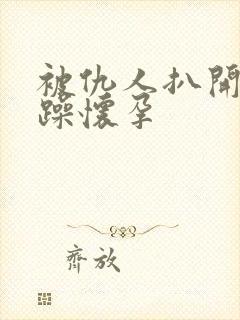 被仇人扒开
躁懷孕
齊放